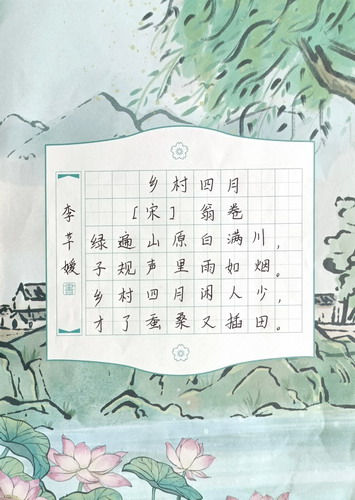 乡村四月
[宋] 翁卷
绿遍山原白满川，
子规声里雨如烟。
乡村四月闲人少，
才了蚕桑又插田。
李芊媛
書